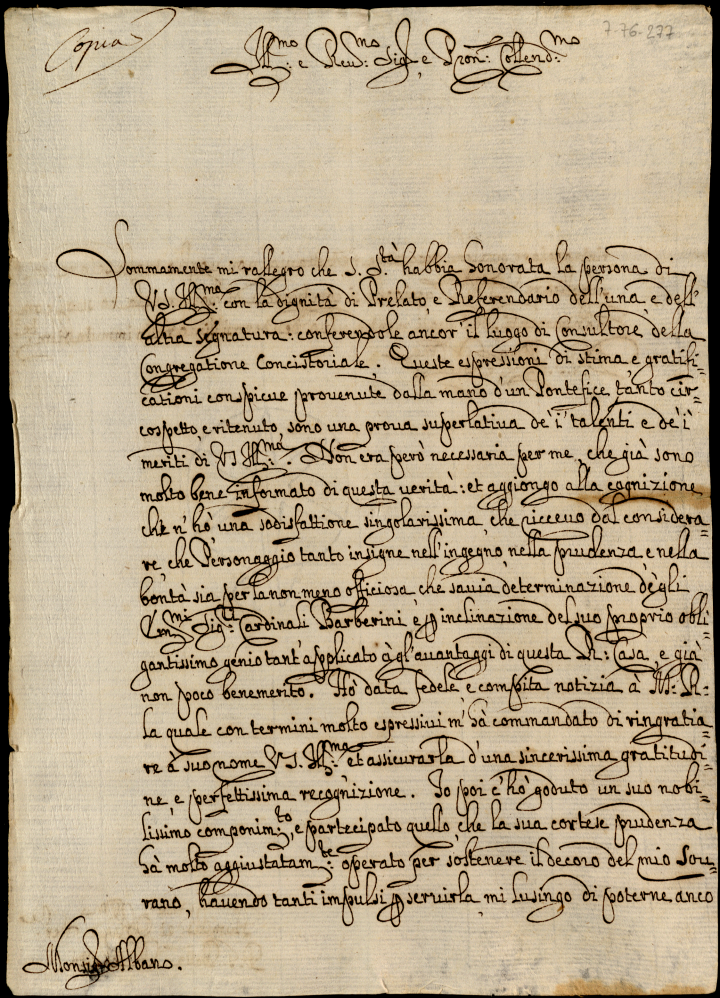 Copia
7-76-277
Ill.mo e Reu.mo Sig.r e Pron: Collend.mo
Sommamente mi rallegro che S. S.tà habbia honorata la persona di
VS. Ill.ma con la dignità di Prelato, e Referendario dell'una e dell'
altra segnatura: conferendole ancor' il luogo di Consultore della
Congregatione Concistoriale. Queste espressioni di stima e gratifi=
cationi conspicue provenute dalla mano d'un Pontefice tanto cir=
cospetto, e ritenuto, sono una prova superlativa de i' talenti e de i'
meriti di VS Ill.ma. Non era però necessaria per me, che già sono
molto bene informato di questa verità: et aggiongo alla cognizione
che n'hò una sodisfattione singolarissima, che riceuo dal considera=
re, che Personaggio tanto insigne nell'ingegno, nella prudenza, e nella
bontà sia per la non meno officiosa, che sauia determinazione dègli
Em.mi Sig.ri Cardinali Barberini, e p inclinazione del suo proprio obli=
gantissimo genio tant'applicato à gl'auantaggi di questa R: Casa, e già
non poco benemerito. Hò data fedele e compita notizia à M: R:
la quale con termini molto espressiui m'hà commandato di ringratia=
re à suo nome VS. Ill.ma et assicurarla d'una sincerissima gratitudi=
ne, e perfettissima recognizione. Io poi c'hò goduto un suo nobi=
lissimo componim.to, e partecipato quello, che la sua cortese prudenza
hà molto aggiustatam.te operato per sostenere il decoro del mio Sou=
rano, hauendo tanti impulsi p seruirla, mi lusingo di poterne anco
Monsig.r Albano.